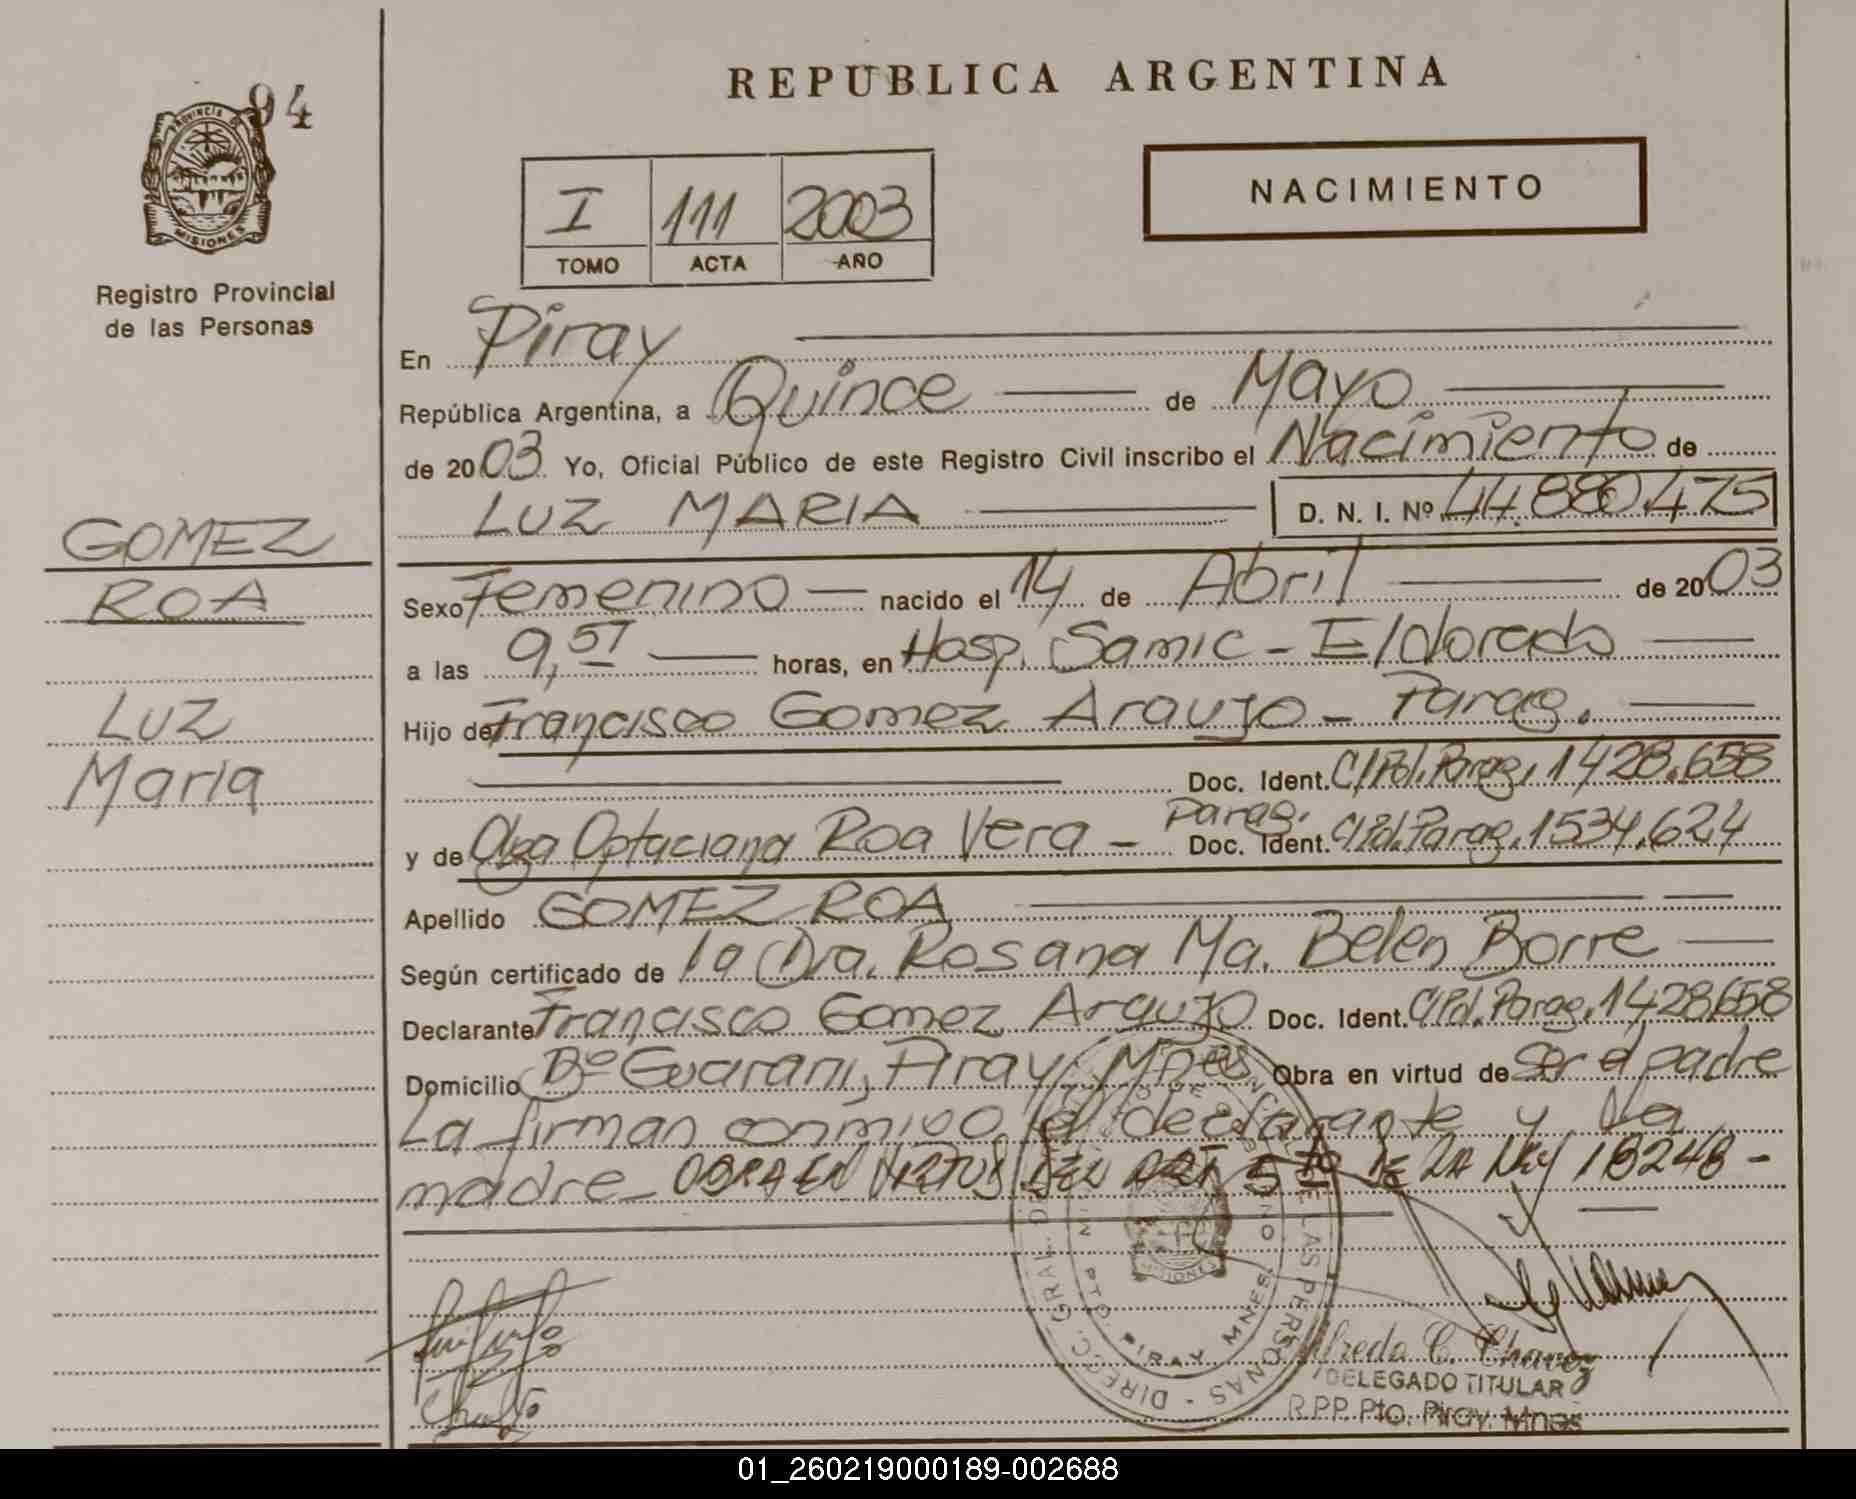 94
PROVINCIA DE
MISIONES
Registro Provincial
de las Personas
GOMEZ
ROA
LUZ
Maria
REPUBLICA ARGENTINA
I 111 2003
TOMO ACTA AÑO
NACIMIENTO
En Piray
República Argentina, a Quince de Mayo
de 2003 Yo, Oficial Público de este Registro Civil inscribo el Nacimiento de
LUZ MARIA D. N. I. Nº 44.880.475
Sexo Femenino nacido el 14 de Abril de 2003
a las 9,57 horas, en Hosp. Samic - Eldorado
Hijo de Francisco Gomez Araujo - Parag.
Doc. Ident. C/Pol. Parag. 1428.658
y de Olga Optaciana Roa Vera - Parag. Doc. Ident. C/Pol. Parag. 1534.624
Apellido GOMEZ ROA
Según certificado de la Dra. Rosana Ma. Belen Borre
Declarante Francisco Gomez Araujo Doc. Ident. C/Pol. Parag. 1428658
Domicilio Bº Guarani, Piray Mnes Obra en virtud de Ser el padre
La firman conmigo el declarante y la
madre - OBRA EN VIRTUD DEL ART 5to DE LA LEY 18248 -
DIRECC. GRAL. DE LAS PERSONAS
PIRAY MNES.
MISIONES
Alfredo C. Chavez
DELEGADO TITULAR
R.P.P. Pto. Piray. Mnes
01_260219000189-002688